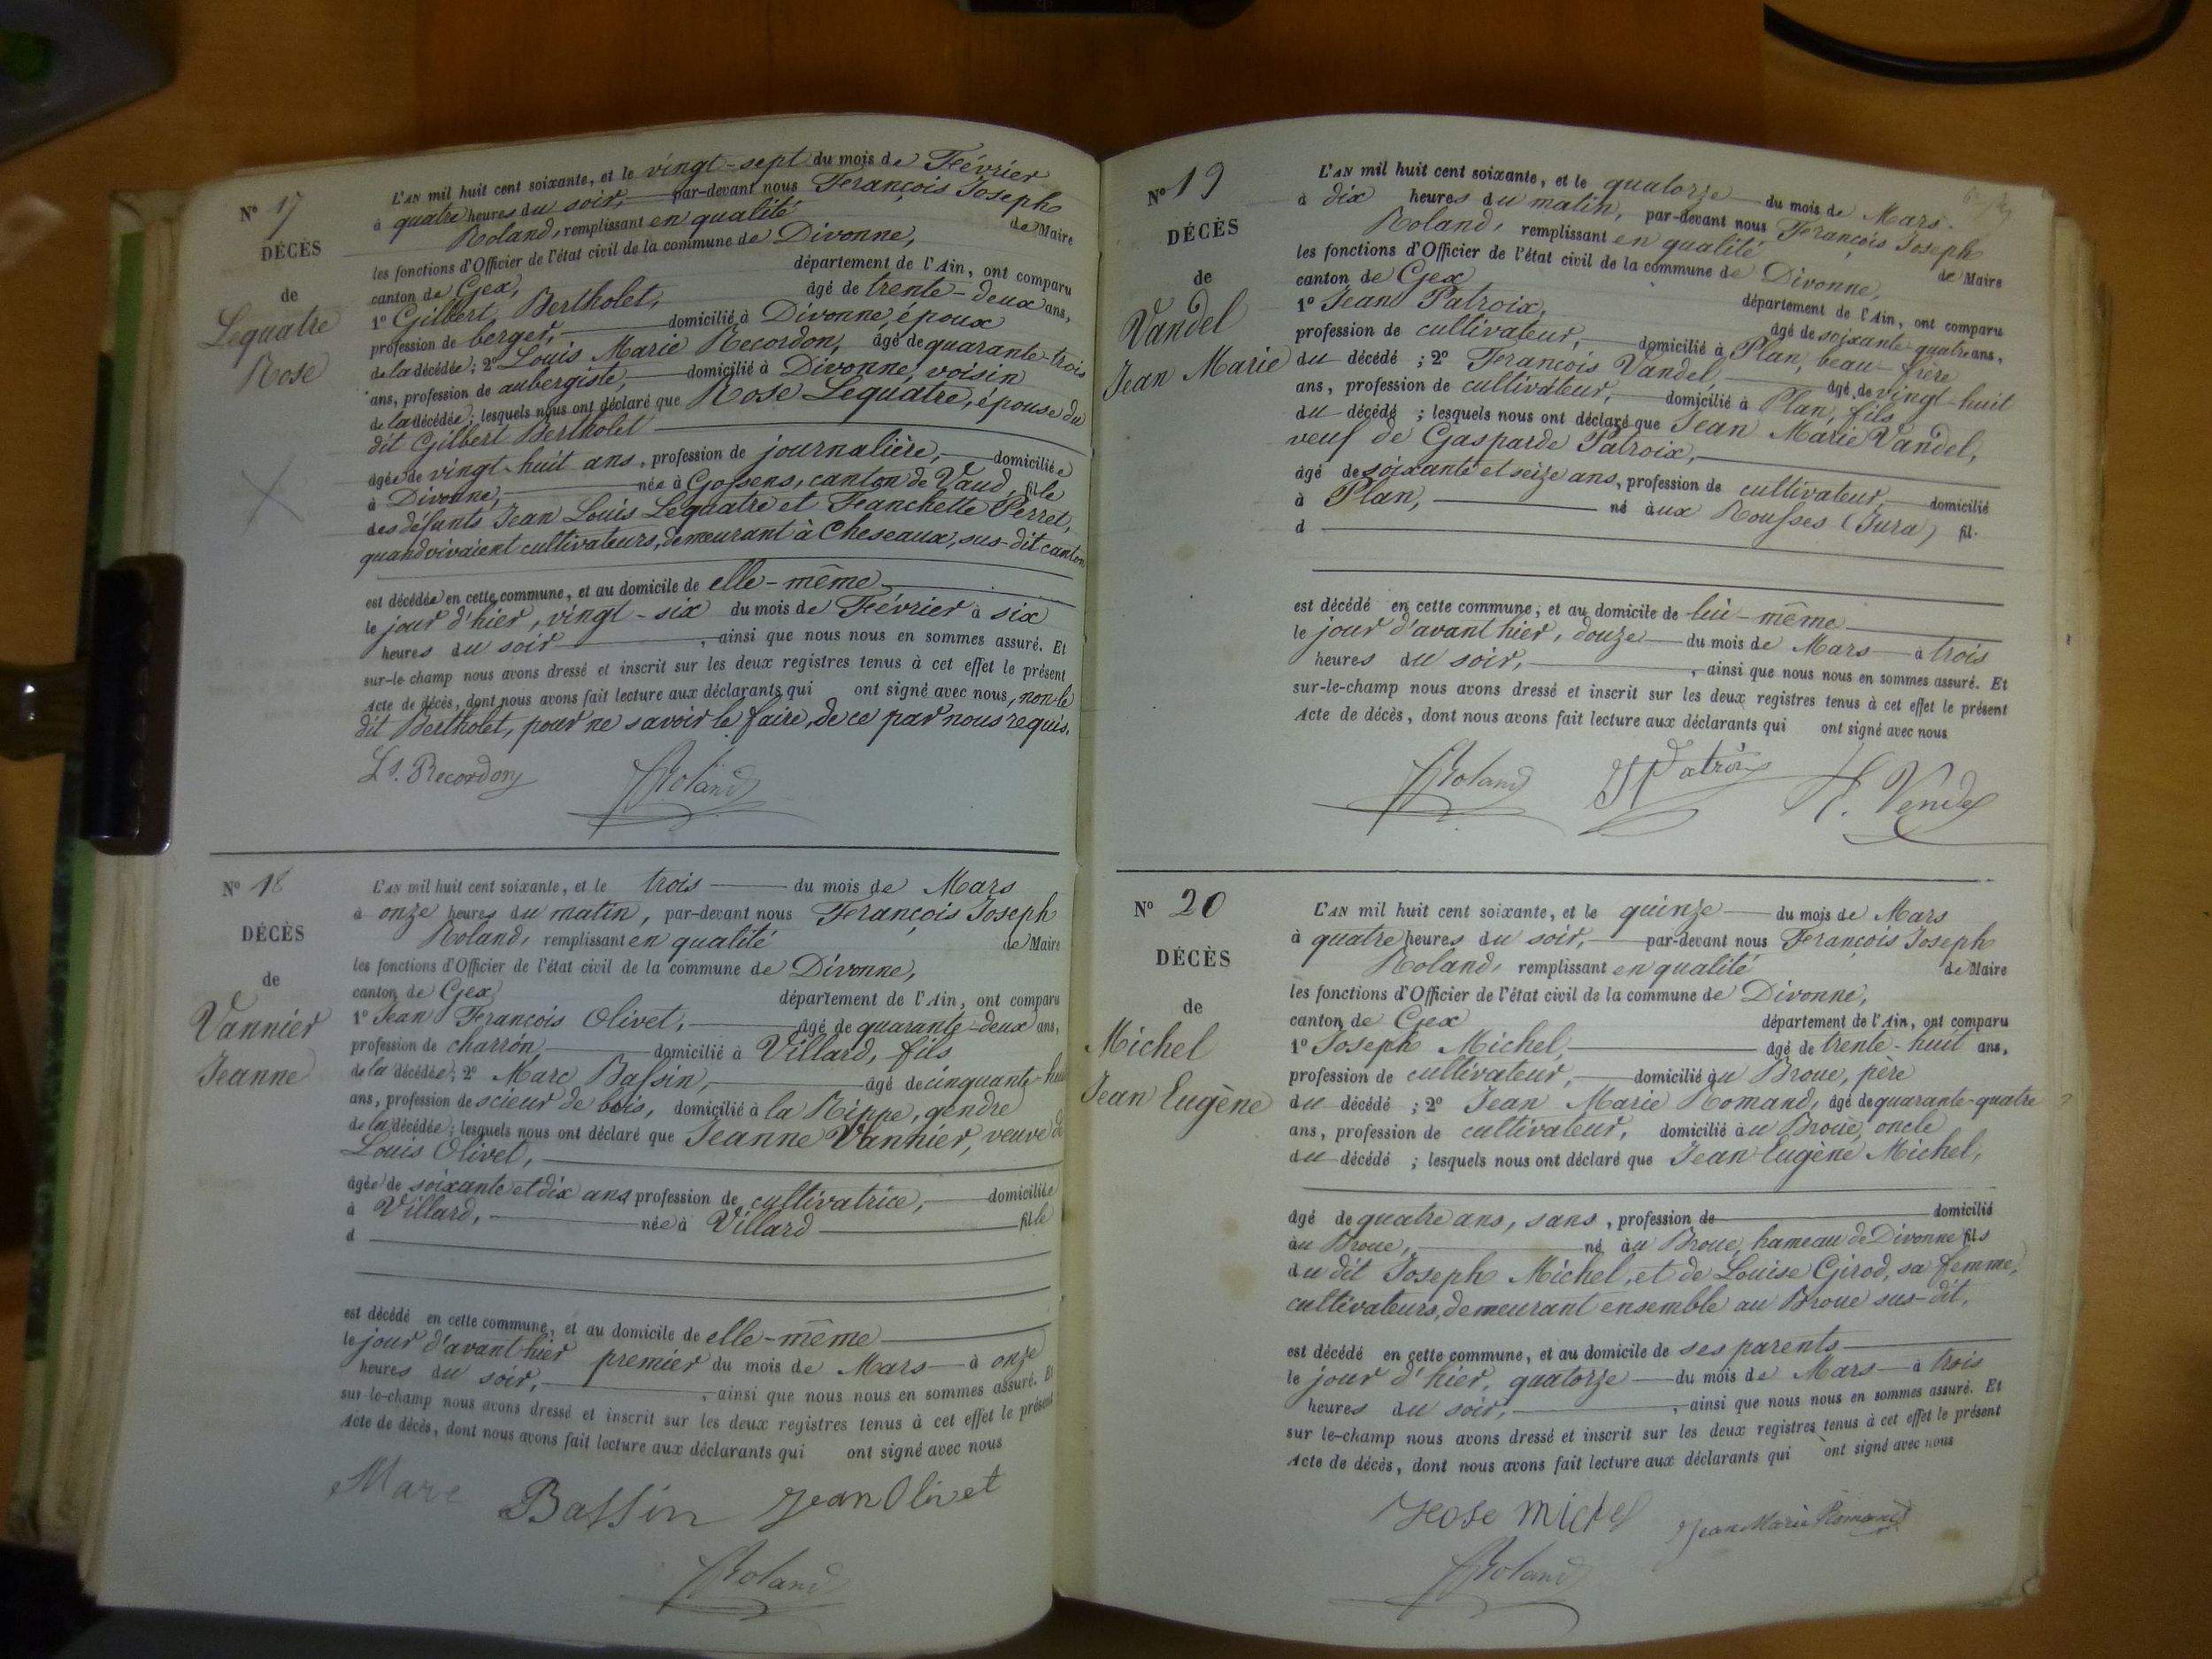 N° 17
DÉCÈS
de
Lequatre
Rose
L'AN mil huit cent soixante, et le vingt-sept du mois de Février
à quatre heures du soir, par-devant nous François Joseph
Roland, remplissant en qualité de Maire
les fonctions d'Officier de l'état civil de la commune de Divonne,
canton de Gex, département de l'Ain, ont comparu
1° Gilbert Bertholet, âgé de trente-deux ans,
profession de berger, domicilié à Divonne, époux
de la décédée; 2° Louis Marie Recordon, âgé de quarante-trois
ans, profession de aubergiste, domicilié à Divonne, voisin
de la décédée; lesquels nous ont déclaré que Rose Lequatre, épouse du
dit Gilbert Bertholet
âgée de vingt-huit ans, profession de journalière, domiciliée
à Divonne, née à Gossens, canton de Vaud, fille
des défunts Jean Louis Lequatre et Franchette Perret,
quand vivaient cultivateurs, demeurant à Cheseaux, sus-dit canton
est décédée en cette commune, et au domicile de elle-même
le jour d'hier, vingt-six du mois de Février à six
heures du soir, ainsi que nous nous en sommes assuré. Et
sur-le-champ nous avons dressé et inscrit sur les deux registres tenus à cet effet le présent
Acte de décès, dont nous avons fait lecture aux déclarants qui ont signé avec nous, non le
dit Bertholet, pour ne savoir le faire, de ce par nous requis.
Ls. Recordon Roland
N° 18
DÉCÈS
de
Vannier
Jeanne
L'AN mil huit cent soixante, et le trois du mois de Mars
à onze heures du matin, par-devant nous François Joseph
Roland, remplissant en qualité de Maire
les fonctions d'Officier de l'état civil de la commune de Divonne,
canton de Gex département de l'Ain, ont comparu
1° Jean François Olivet, âgé de quarante-deux ans,
profession de charron, domicilié à Villard, fils
de la décédée; 2° Marc Bassin, âgé de cinquante-huit
ans, profession de scieur de bois, domicilié à la Rippe, gendre
de la décédée; lesquels nous ont déclaré que Jeanne Vannier, veuve de
Louis Olivet,
âgée de soixante et dix ans profession de cultivatrice, domiciliée
à Villard, née à Villard fille
d
est décédé en cette commune, et au domicile de elle-même
le jour d'avant hier premier du mois de Mars à onze
heures du soir, ainsi que nous nous en sommes assuré. Et
sur le-champ nous avons dressé et inscrit sur les deux registres tenus à cet effet le présent
Acte de décès, dont nous avons fait lecture aux déclarants qui ont signé avec nous
Marc Bassin Jean Olivet
Roland
N° 19
DÉCÈS
de
Vandel
Jean Marie
L'AN mil huit cent soixante, et le quatorze du mois de Mars.
à dix heures du matin, par-devant nous François Joseph
Roland, remplissant en qualité de Maire
les fonctions d'Officier de l'état civil de la commune de Divonne,
canton de Gex département de l'Ain, ont comparu
1° Jean Patroix, âgé de soixante-quatre ans,
profession de cultivateur, domicilié à Plan, beau-frère
du décédé; 2° François Vandel, âgé de vingt-huit
ans, profession de cultivateur, domicilié à Plan, fils
du décédé; lesquels nous ont déclaré que Jean Marie Vandel,
veuf de Gasparde Patroix,
âgé de soixante et seize ans, profession de cultivateur, domicilié
à Plan, né aux Rousses (Jura) fil.
d
est décédé en cette commune, et au domicile de lui-même
le jour d'avant hier, douze du mois de Mars à trois
heures du soir, ainsi que nous nous en sommes assuré. Et
sur-le-champ nous avons dressé et inscrit sur les deux registres tenus à cet effet le présent
Acte de décès, dont nous avons fait lecture aux déclarants qui ont signé avec nous
Roland
N° 20
DÉCÈS
de
Michel
Jean Eugène
L'AN mil huit cent soixante, et le quinze du mois de Mars
à quatre heures du soir, par-devant nous François Joseph
Roland, remplissant en qualité de Maire
les fonctions d'Officier de l'état civil de la commune de Divonne,
canton de Gex département de l'Ain, ont comparu
1° Joseph Michel, âgé de trente-huit ans,
profession de cultivateur, domicilié au Broue, père
du décédé; 2° Jean Marie Romand, âgé de quarante-quatre
ans, profession de cultivateur, domicilié au Broue, oncle
du décédé; lesquels nous ont déclaré que Jean Eugène Michel,
âgé de quatre ans, sans, profession de domicilié
au Broue, né au Broue, hameau de Divonne fils
du dit Joseph Michel, et de Louise Girod, sa femme,
cultivateurs, demeurant ensemble au Broue sus-dit,
est décédé en cette commune, et au domicile de ses parents
le jour d'hier, quatorze du mois de Mars à trois
heures du soir, ainsi que nous nous en sommes assuré. Et
sur le-champ nous avons dressé et inscrit sur les deux registres tenus à cet effet le présent
Acte de décès, dont nous avons fait lecture aux déclarants qui ont signé avec nous
Jean Marie Romand
Roland